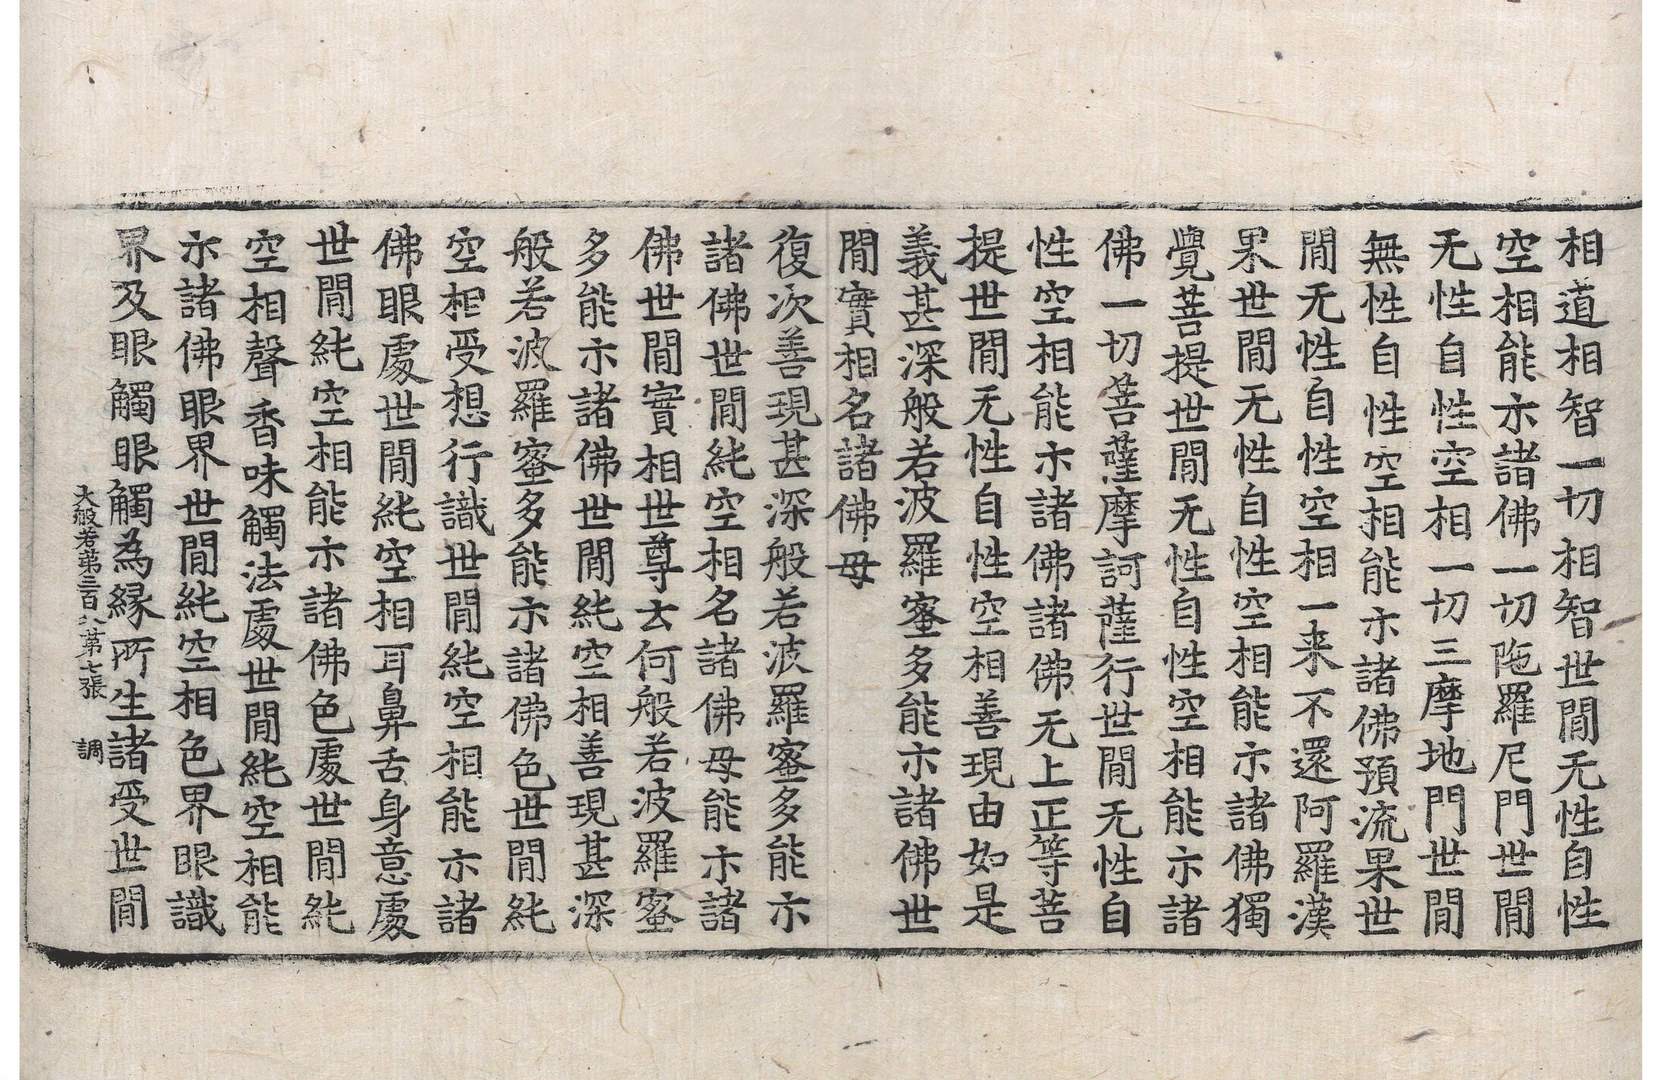 相道相智一切相智世閒无性自性
空相能示諸佛一切陁羅尼門世閒
无性自性空相一切三摩地門世閒
無性自性空相能示諸佛預流果世
閒无性自性空相一来不還阿羅漢
果世閒无性自性空相能示諸佛獨
覺菩提世閒无性自性空相能示諸
佛一切菩薩摩訶薩行世閒无性自
性空相能示諸佛諸佛无上正等菩
提世閒无性自性空相善現由如是
義甚深般若波羅蜜多能示諸佛世
閒實相名諸佛母
復次善現甚深般若波羅蜜多能示
諸佛世閒純空相名諸佛母能示諸
佛世閒實相世尊云何般若波羅蜜
多能示諸佛世閒純空相善現甚深
般若波羅蜜多能示諸佛色世閒純
空相受想行識世閒純空相能示諸
佛眼處世閒純空相耳鼻舌身意處
世閒純空相能示諸佛色處世閒純
空相聲香味觸法處世閒純空相能
示諸佛眼界世閒純空相色界眼識
界及眼觸眼觸為緣所生諸受世閒
大般若第三百八第七張 調